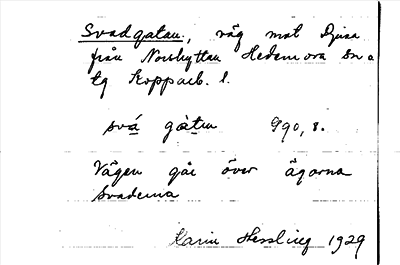 Svadgatan, väg mot Djusa
från Norshyttan Hedemora sn o
tg Kopparb. l.
svá gàtn 990, 8.
Vägen går över ägorna
Svaderna
Karin Hessling 1929